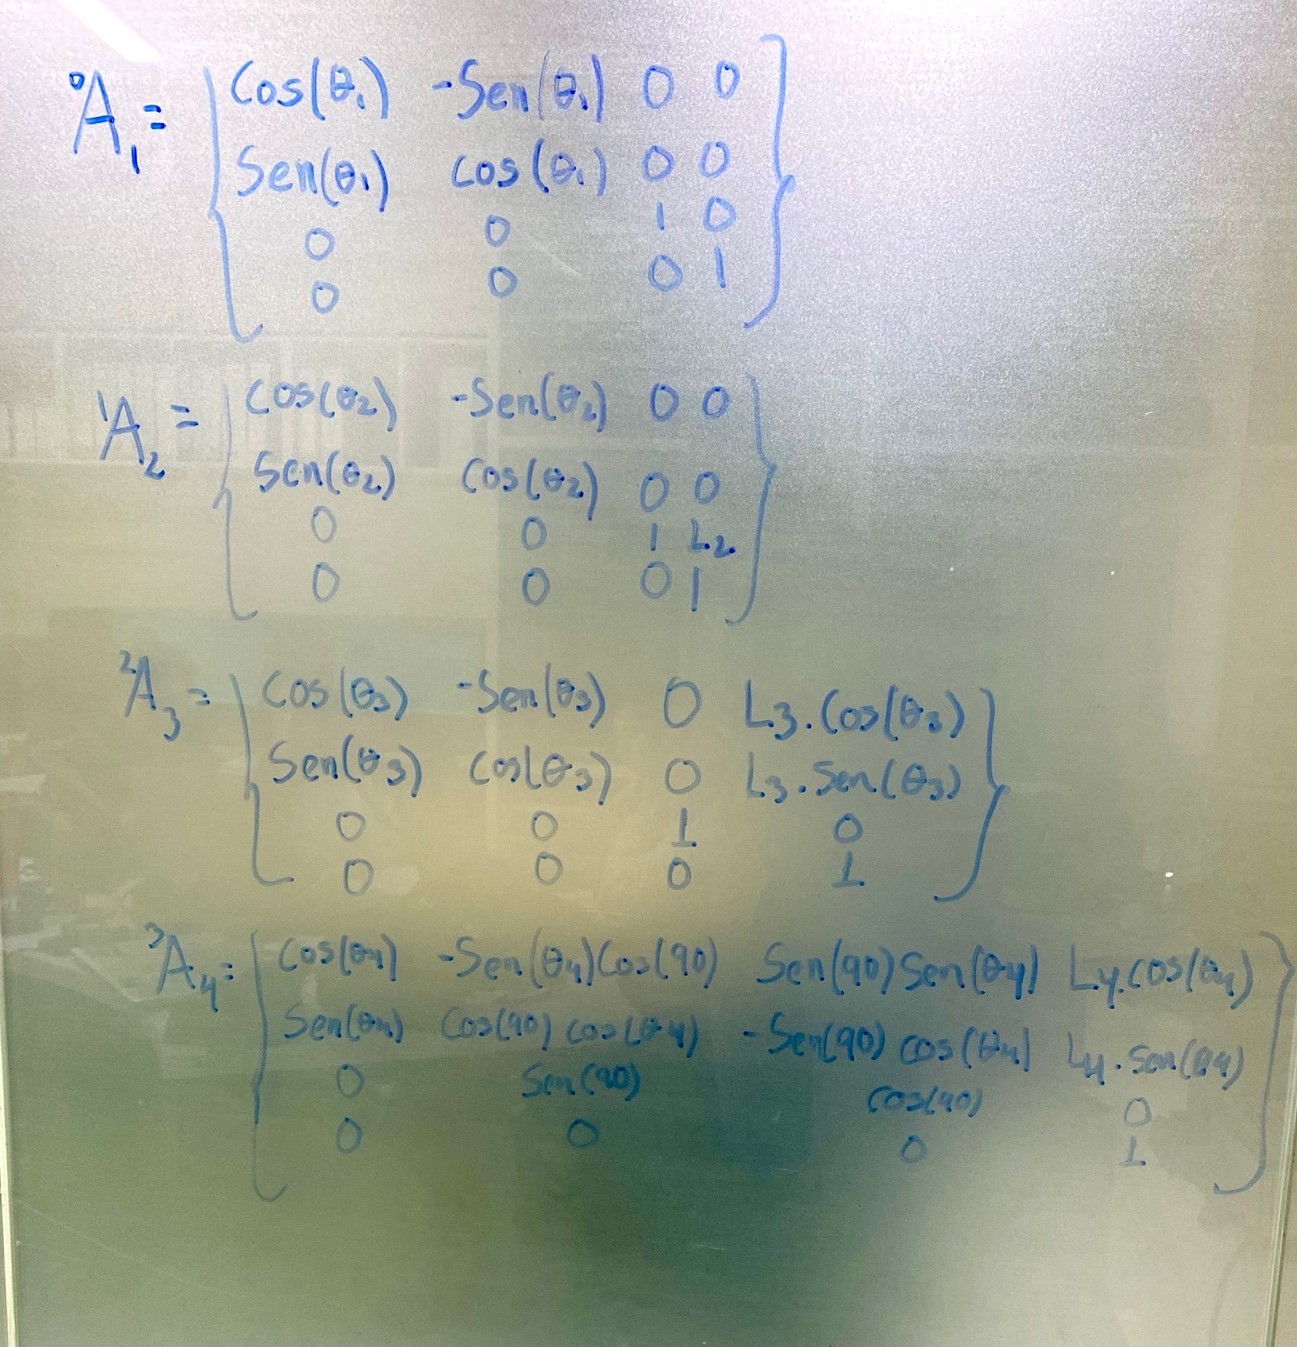 ⁰A₁ = [ Cos(θ₁) -Sen(θ₁) 0 0
Sen(θ₁) cos(θ₁) 0 0
0 0 1 0
0 0 0 1 ]
¹A₂ = [ Cos(θ₂) -Sen(θ₂) 0 0
Sen(θ₂) Cos(θ₂) 0 0
0 0 1 L₂
0 0 0 1 ]
²A₃ = [ Cos(θ₃) -Sen(θ₃) 0 L₃.Cos(θ₃)
Sen(θ₃) Cos(θ₃) 0 L₃.Sen(θ₃)
0 0 1 0
0 0 0 1 ]
³A₄ = [ Cos(θ₄) -Sen(θ₄)Cos(90) Sen(90)Sen(θ₄) L₄.cos(θ₄)
Sen(θ₄) Cos(90) cos(θ₄) -Sen(90) cos(θ₄) L₄.Sen(θ₄)
0 Sen(90) Cos(90) 0
0 0 0 1 ]